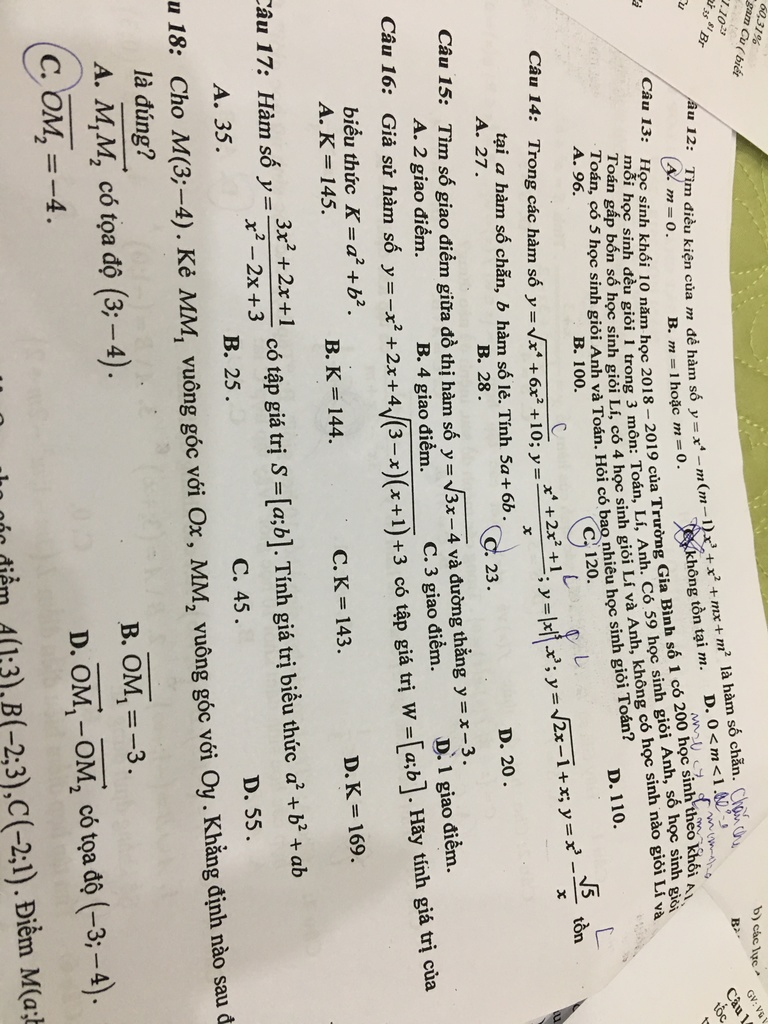 Câu 12: Tìm điều kiện của m để hàm số y = x⁴ − m(m−1)x³ + x² + mx + m² là hàm số chẵn.
A. m = 0. B. m = 1 hoặc m = 0. C. không tồn tại m. D. 0 < m < 1
Câu 13: Học sinh khối 10 năm học 2018 – 2019 của Trường Gia Bình số 1 có 200 học sinh theo khối A1
mỗi học sinh đều giỏi 1 trong 3 môn: Toán, Lí, Anh. Có 59 học sinh giỏi Anh, số học sinh giỏi
Toán gấp bốn số học sinh giỏi Lí, có 4 học sinh giỏi Lí và Anh, không có học sinh nào giỏi Lí và
Toán, có 5 học sinh giỏi Anh và Toán. Hỏi có bao nhiêu học sinh giỏi Toán?
A. 96. B. 100. C. 120. D. 110.
Câu 14: Trong các hàm số y = √(x⁴ + 6x² + 10); y = (x⁴ + 2x² + 1)/x; y = |x|³ x³; y = √(2x−1) + x; y = x³ − √5/x tồn
tại a hàm số chẵn, b hàm số lẻ. Tính 5a + 6b.
A. 27. B. 28. C. 23. D. 20.
Câu 15: Tìm số giao điểm giữa đồ thị hàm số y = √(3x − 4) và đường thẳng y = x − 3.
A. 2 giao điểm. B. 4 giao điểm. C. 3 giao điểm. D. 1 giao điểm.
Câu 16: Giả sử hàm số y = −x² + 2x + 4√((3−x)(x+1)) + 3 có tập giá trị W = [a;b]. Hãy tính giá trị của
biểu thức K = a² + b².
A. K = 145. B. K = 144. C. K = 143. D. K = 169.
Câu 17: Hàm số y = (3x² + 2x + 1)/(x² − 2x + 3) có tập giá trị S = [a;b]. Tính giá trị biểu thức a² + b² + ab
A. 35. B. 25. C. 45. D. 55.
u 18: Cho M(3;−4). Kẻ MM₁ vuông góc với Ox, MM₂ vuông góc với Oy. Khẳng định nào sau đ
là đúng?
A. M₁M₂ có tọa độ (3;−4). B. OM₁ = −3.
C. OM₂ = −4. D. OM₁ − OM₂ có tọa độ (−3;−4).
các điểm A(1;3), B(−2;3), C(−2;1). Điểm M(a;b